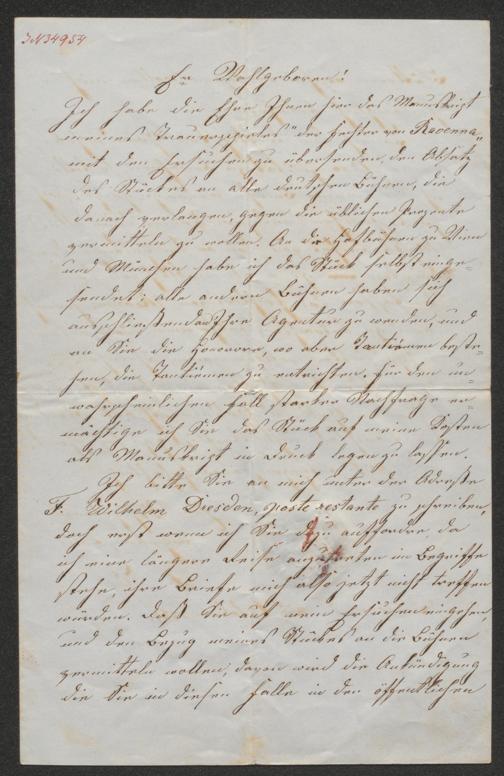 JN34954
Ew Wohlgeboren!
Ich habe die Ehre Ihnen hier das Manuskript
meines Trauerspieles "der Fechter von Ravenna"
mit dem Ersuchen zu übersenden, den Absatz
des Stückes an alle deutschen Bühnen, die
danach verlangen, gegen die üblichen Prozente
vermitteln zu wollen. An die Hofbühnen zu Wien
und München habe ich das Stück selbst einge=
sendet; alle andern Bühnen haben sich
ausschließend an Ihre Agentur zu wenden, und
an Sie die Honorare, wo aber Tantièmen beste=
hen, die Tantièmen zu entrichten. Für den un=
wahrscheinlichen Fall starker Nachfrage er=
mächtige ich Sie das Stück auf meine Kosten
als Manuskript in Druck legen zu lassen.
Ich bitte Sie an mich unter der Adresse
F. Wilhelm Dresden, poste restante zu schreiben,
doch erst wenn ich Sie dazu auffordre, da
ich eine längere Reise anzutreten im Begriffe
stehe, ihre Briefe mich also jetzt nicht treffen
würden. Daß Sie auf mein Ersuchen eingehen,
und den Bezug meines Stückes an die Bühnen
vermitteln wollen, davon wird die Ankündigung
die Sie in diesem Falle in den öffentlichen